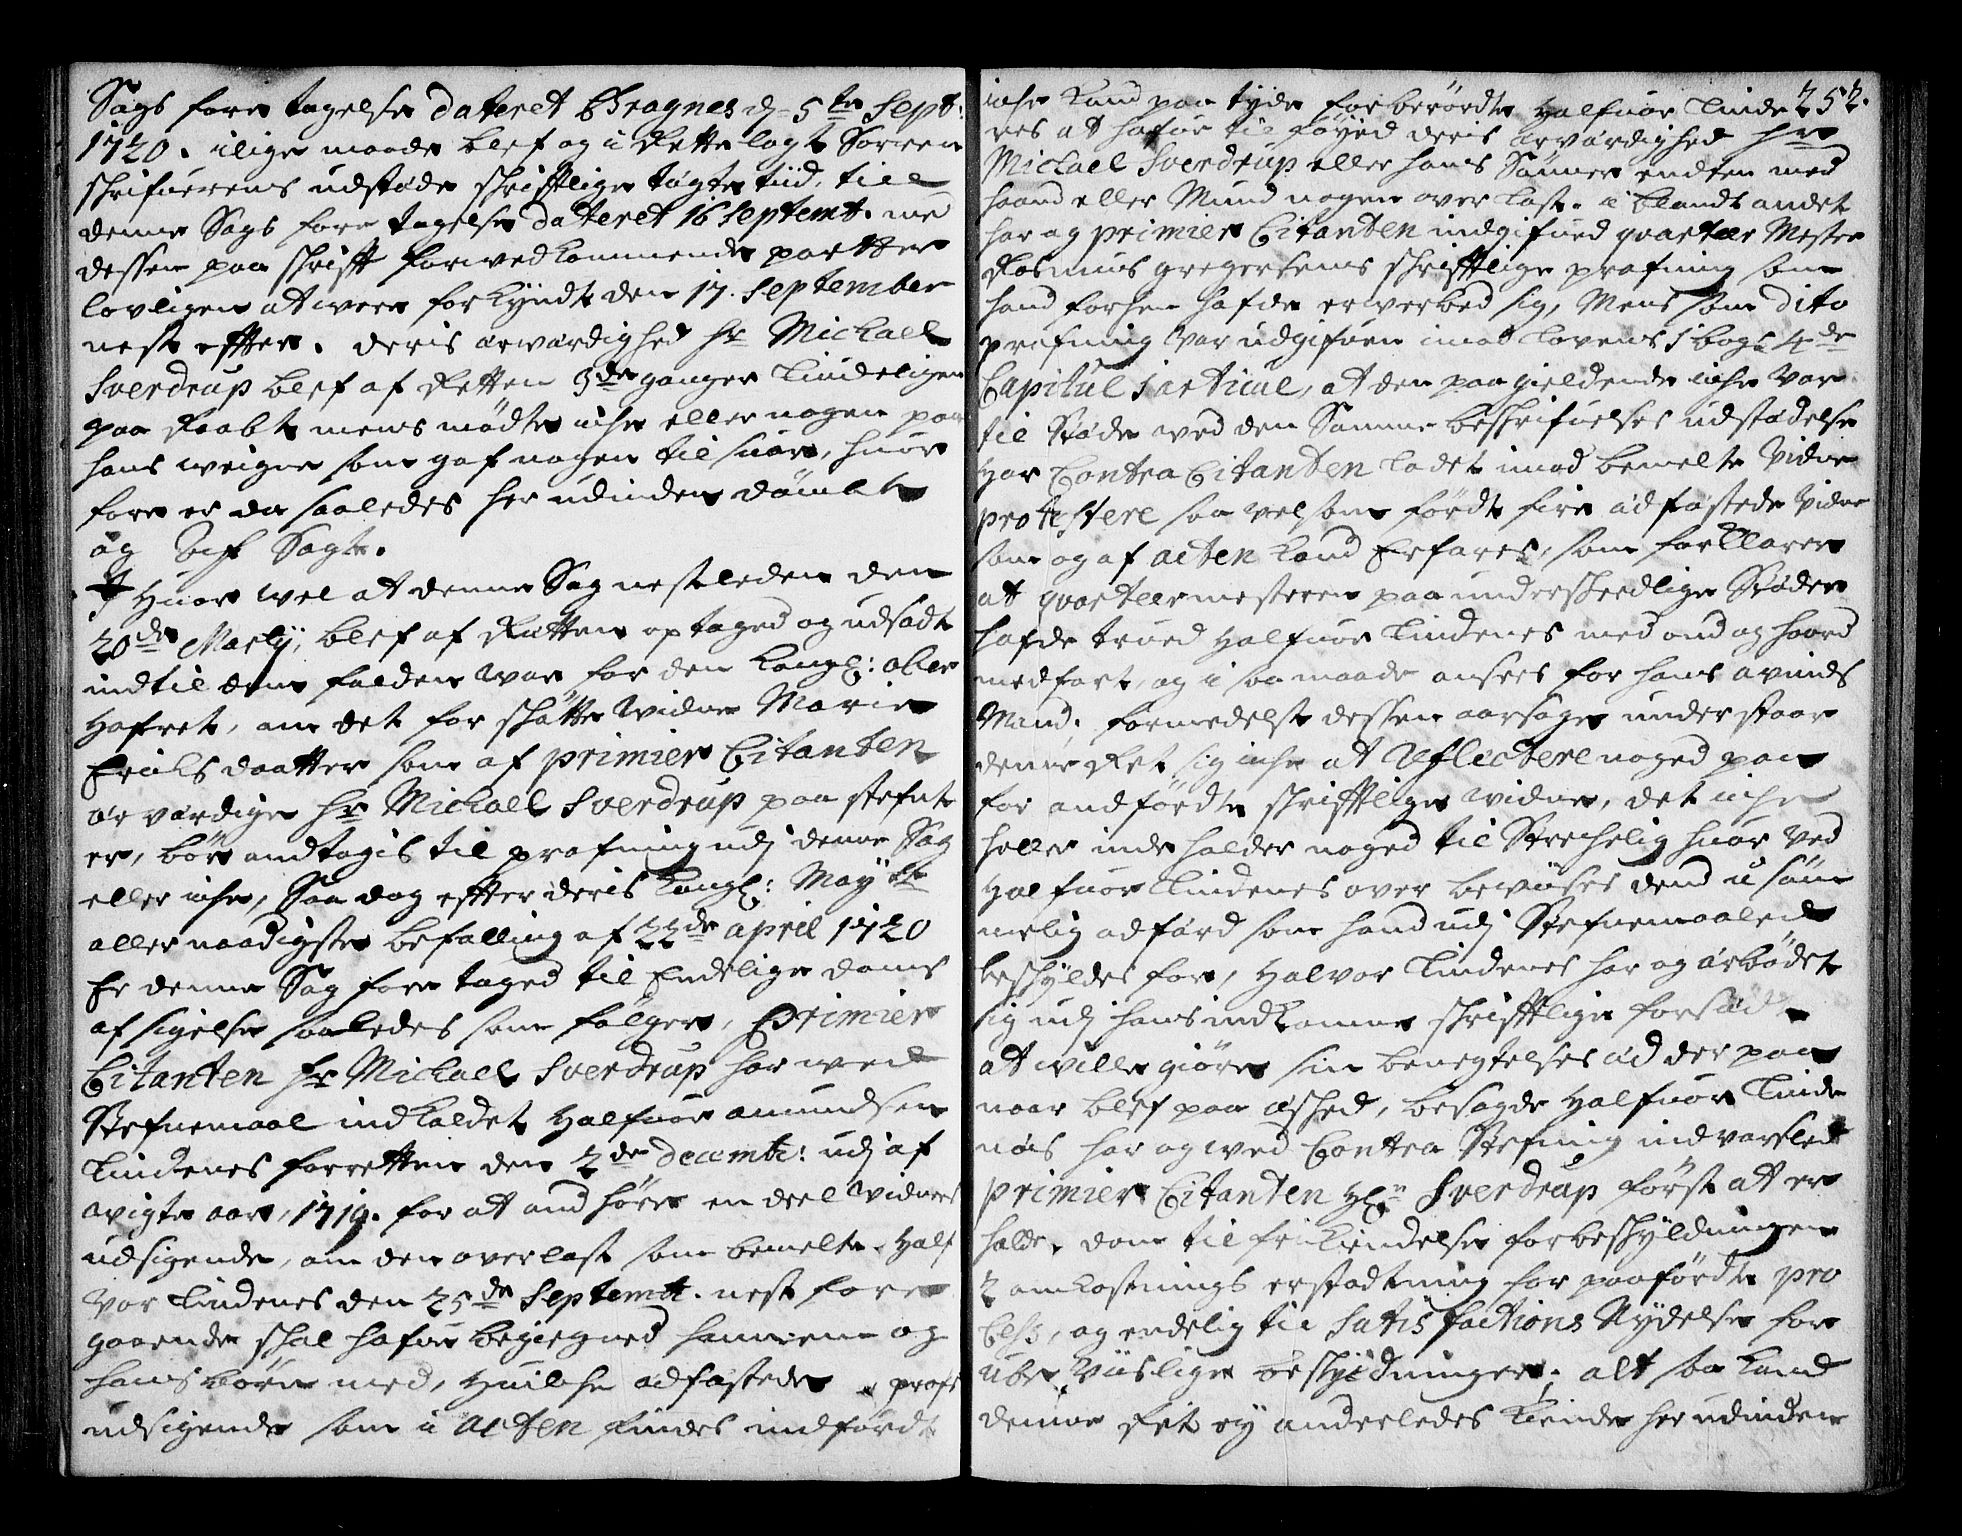 Sags fore tagelse dateret Bragnes d. 5te Sept:
1720. ilige maade blef og i Rette lagt Sorren
schrifuerens udstæde schrifftlige tægte tiid, till
denne Sags fore tagelse dateret 16 Septemt. me
dessen paa schrifft for wedkommende partter
lovligen at were forkyndt den 17. September
nest effter. deris ærværdighed hr Michaell
Sverdrup blef af Retten 3de ganger lindeligen
paa Raabt mens mødte iche eller nogen paa
hans weigne som gaf nogen til suar, huor
fore er da saaledes her udinden dømbt
og Afsagt.
Huor wel at denne Sag nestleden den
20de Martij, blef af Retten optaged og udsadt
indtil dom falden war for den Kongl: ober
Hofret, om det for schøtte widne Marie
Erichsdaatter som af primier Citanten
ærværdige hr Michaell Sverdrup paa stefnt
er, bør andtagis til prøfning udj denne Sag
eller iche, Saa dog effter deris Kongl: Maytz
aller naadigste befalling af 22de april 1720
Er denne Sag fore taged til Endelige doms
af sigelse saaledes som følger, Primier
Citanten hr Michaell Sverdrup har wed
Stefnemaal indkaldet Halfuor amundsen
Lindenes for retten den 2de decembr: udj af
wigte aar, 1719. for att andhøre en deel widners
udsigende, om den overlast som bemelte Half
vor Lindenes den 25de Septembr. nest fore
gaaende schal hafue begiegned hannem og
hans børn med, Huilche edfæstede prof
udsigende som i acten findes indførdt
252.
iche kand paa tyde forberørdte Halfuor Linde
nes at hafue til føyed deris ærværdighed hr
Michael Sverdrup eller hans Sønner endten med
haand eller Mund nogen over last. i blandt andet
har og primier Citanten indgifued qvarteer Mester
Rasmus gregersens schrifftlige prøfning som
hand forhen hafde erwerbed sig, Mens som dito
prøfning var udgifuen imod Lovens 1 bogs 4de
Capitul 1 articul, at den paagieldende iche var
til Stæde wed den Samme beschrifuelses udstædelse
Har Contra Citanten ladet imod bemelte Vidne
protestere saa velsom førdt fire æd fæstede Vidne
som og af acten kand Erfares, som forklarer
at qvarteermesteren paa underscheedlige Stæder
hafde trued Halfuor Lindenes med ond og haard
medfart, og i saa maade ansees for hans avinds
Mand. formedelst dessen aarsage under staar
denne Ret sig iche at Reflectere noged paa
for andførdte schrifftlige widne, det iche
heller inde holder noged til Strechelig huor ved
Halfuor Lindenes over bewises dend u søm
melig adfærd som hand udj Stefnemaaled
beschyldes for, Halvor Lindenes har og ærbødet
sig udj hans indkomne schrifftlige forsæd
at wille giøre sin benegtelses æd der paa
naar blef paa æsched, besagde Halfuor Linde
næs har og wed Contra Stefning indvarsled
primier Citanten Hr Sverdrup først att er
holde dom til frikiendelse for beschyldningen
2 omkostnings erstadtning for paaførdte pro
Cess, og endelig til Satisfactions Nydelse for
ubevislige beschyldninger. alt saa kand
denne Ret ey anderledes kiende her udinden